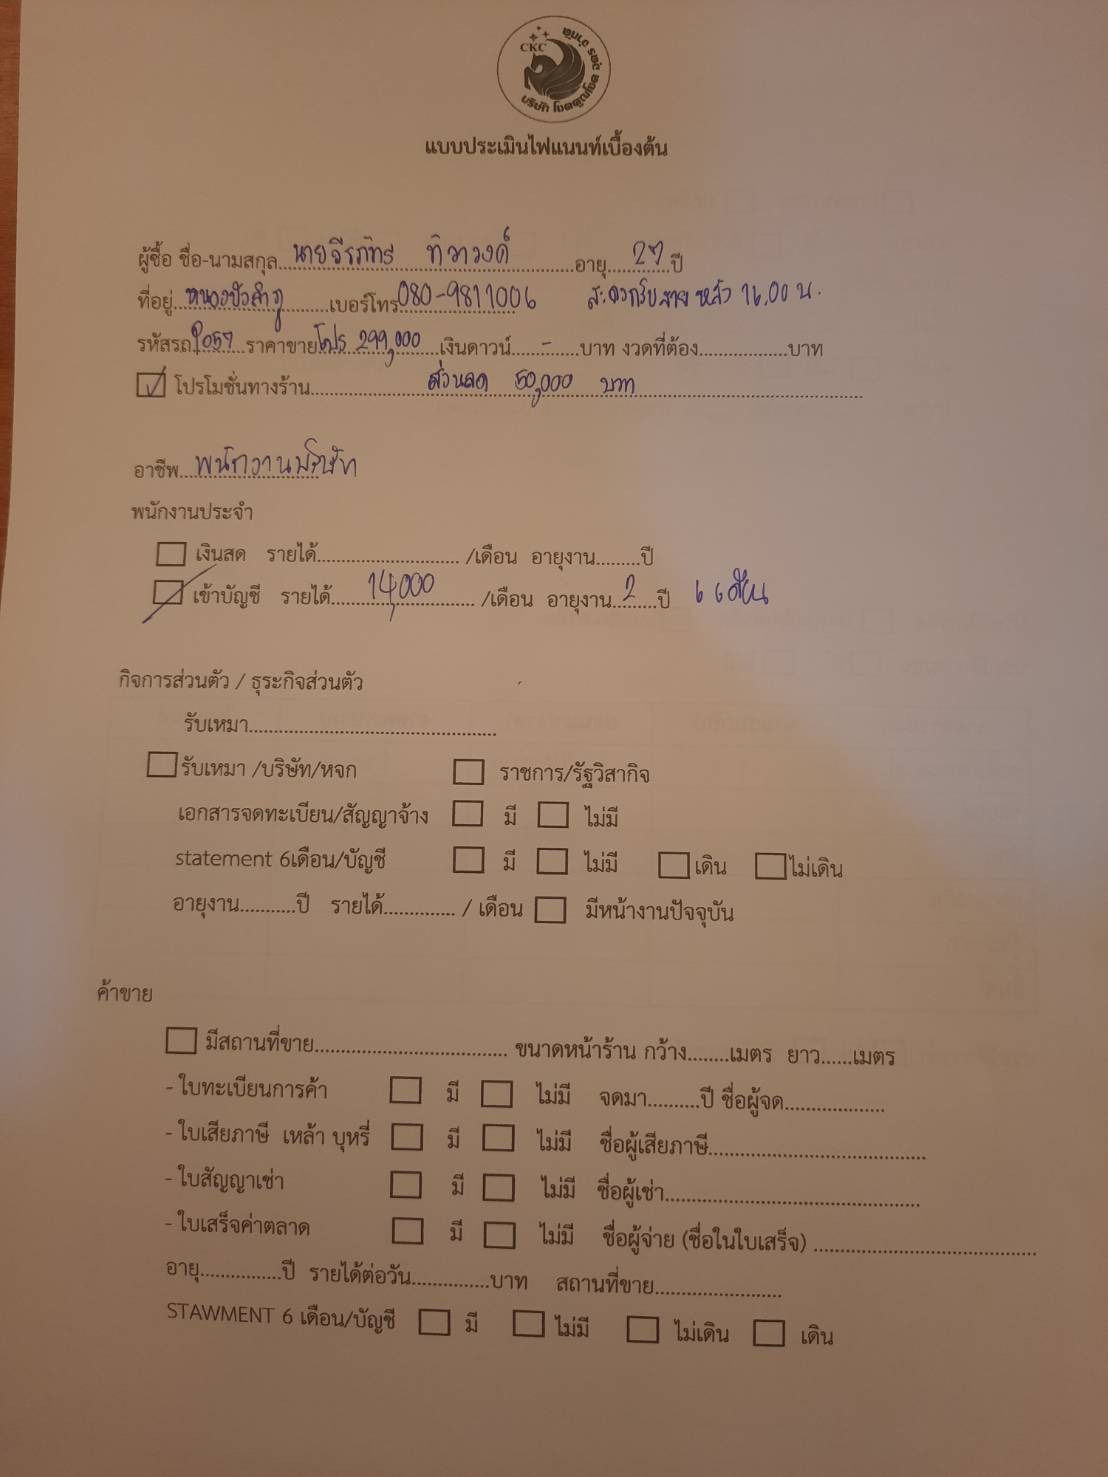 CKC
บริษัท โชคคูณโชค
แบบประเมินไฟแนนท์เบื้องต้น
ผู้ซื้อ ชื่อ-นามสกุล...นายจีรภัทร ทิวาวงค์...อายุ...27...ปี
ที่อยู่...หนองบัวลำภู...เบอร์โทร 080-9811006 สะดวกรับสาย หลัง 16.00 น.
รหัสรถ P057 ราคาขาย โปร 299,000 เงินดาวน์...-...บาท งวดที่ต้อง...บาท
โปรโมชั่นทางร้าน...ส่วนลด 50,000 บาท...
อาชีพ...พนักงานบริษัท
พนักงานประจำ
เงินสด รายได้... /เดือน อายุงาน...ปี
เข้าบัญชี รายได้...14,000... /เดือน อายุงาน...2...ปี 6 เดือน
กิจการส่วนตัว / ธุระกิจส่วนตัว
รับเหมา...
รับเหมา /บริษัท/หจก ราชการ/รัฐวิสากิจ
เอกสารจดทะเบียน/สัญญาจ้าง มี ไม่มี
statement 6เดือน/บัญชี มี ไม่มี เดิน ไม่เดิน
อายุงาน...ปี รายได้... / เดือน มีหน้างานปัจจุบัน
ค้าขาย
มีสถานที่ขาย... ขนาดหน้าร้าน กว้าง...เมตร ยาว...เมตร
- ใบทะเบียนการค้า มี ไม่มี จดมา...ปี ชื่อผู้จด...
- ใบเสียภาษี เหล้า บุหรี่ มี ไม่มี ชื่อผู้เสียภาษี...
- ใบสัญญาเช่า มี ไม่มี ชื่อผู้เช่า...
- ใบเสร็จค่าตลาด มี ไม่มี ชื่อผู้จ่าย (ชื่อในใบเสร็จ) ...
อายุ...ปี รายได้ต่อวัน...บาท สถานที่ขาย...
STAWMENT 6 เดือน/บัญชี มี ไม่มี ไม่เดิน เดิน